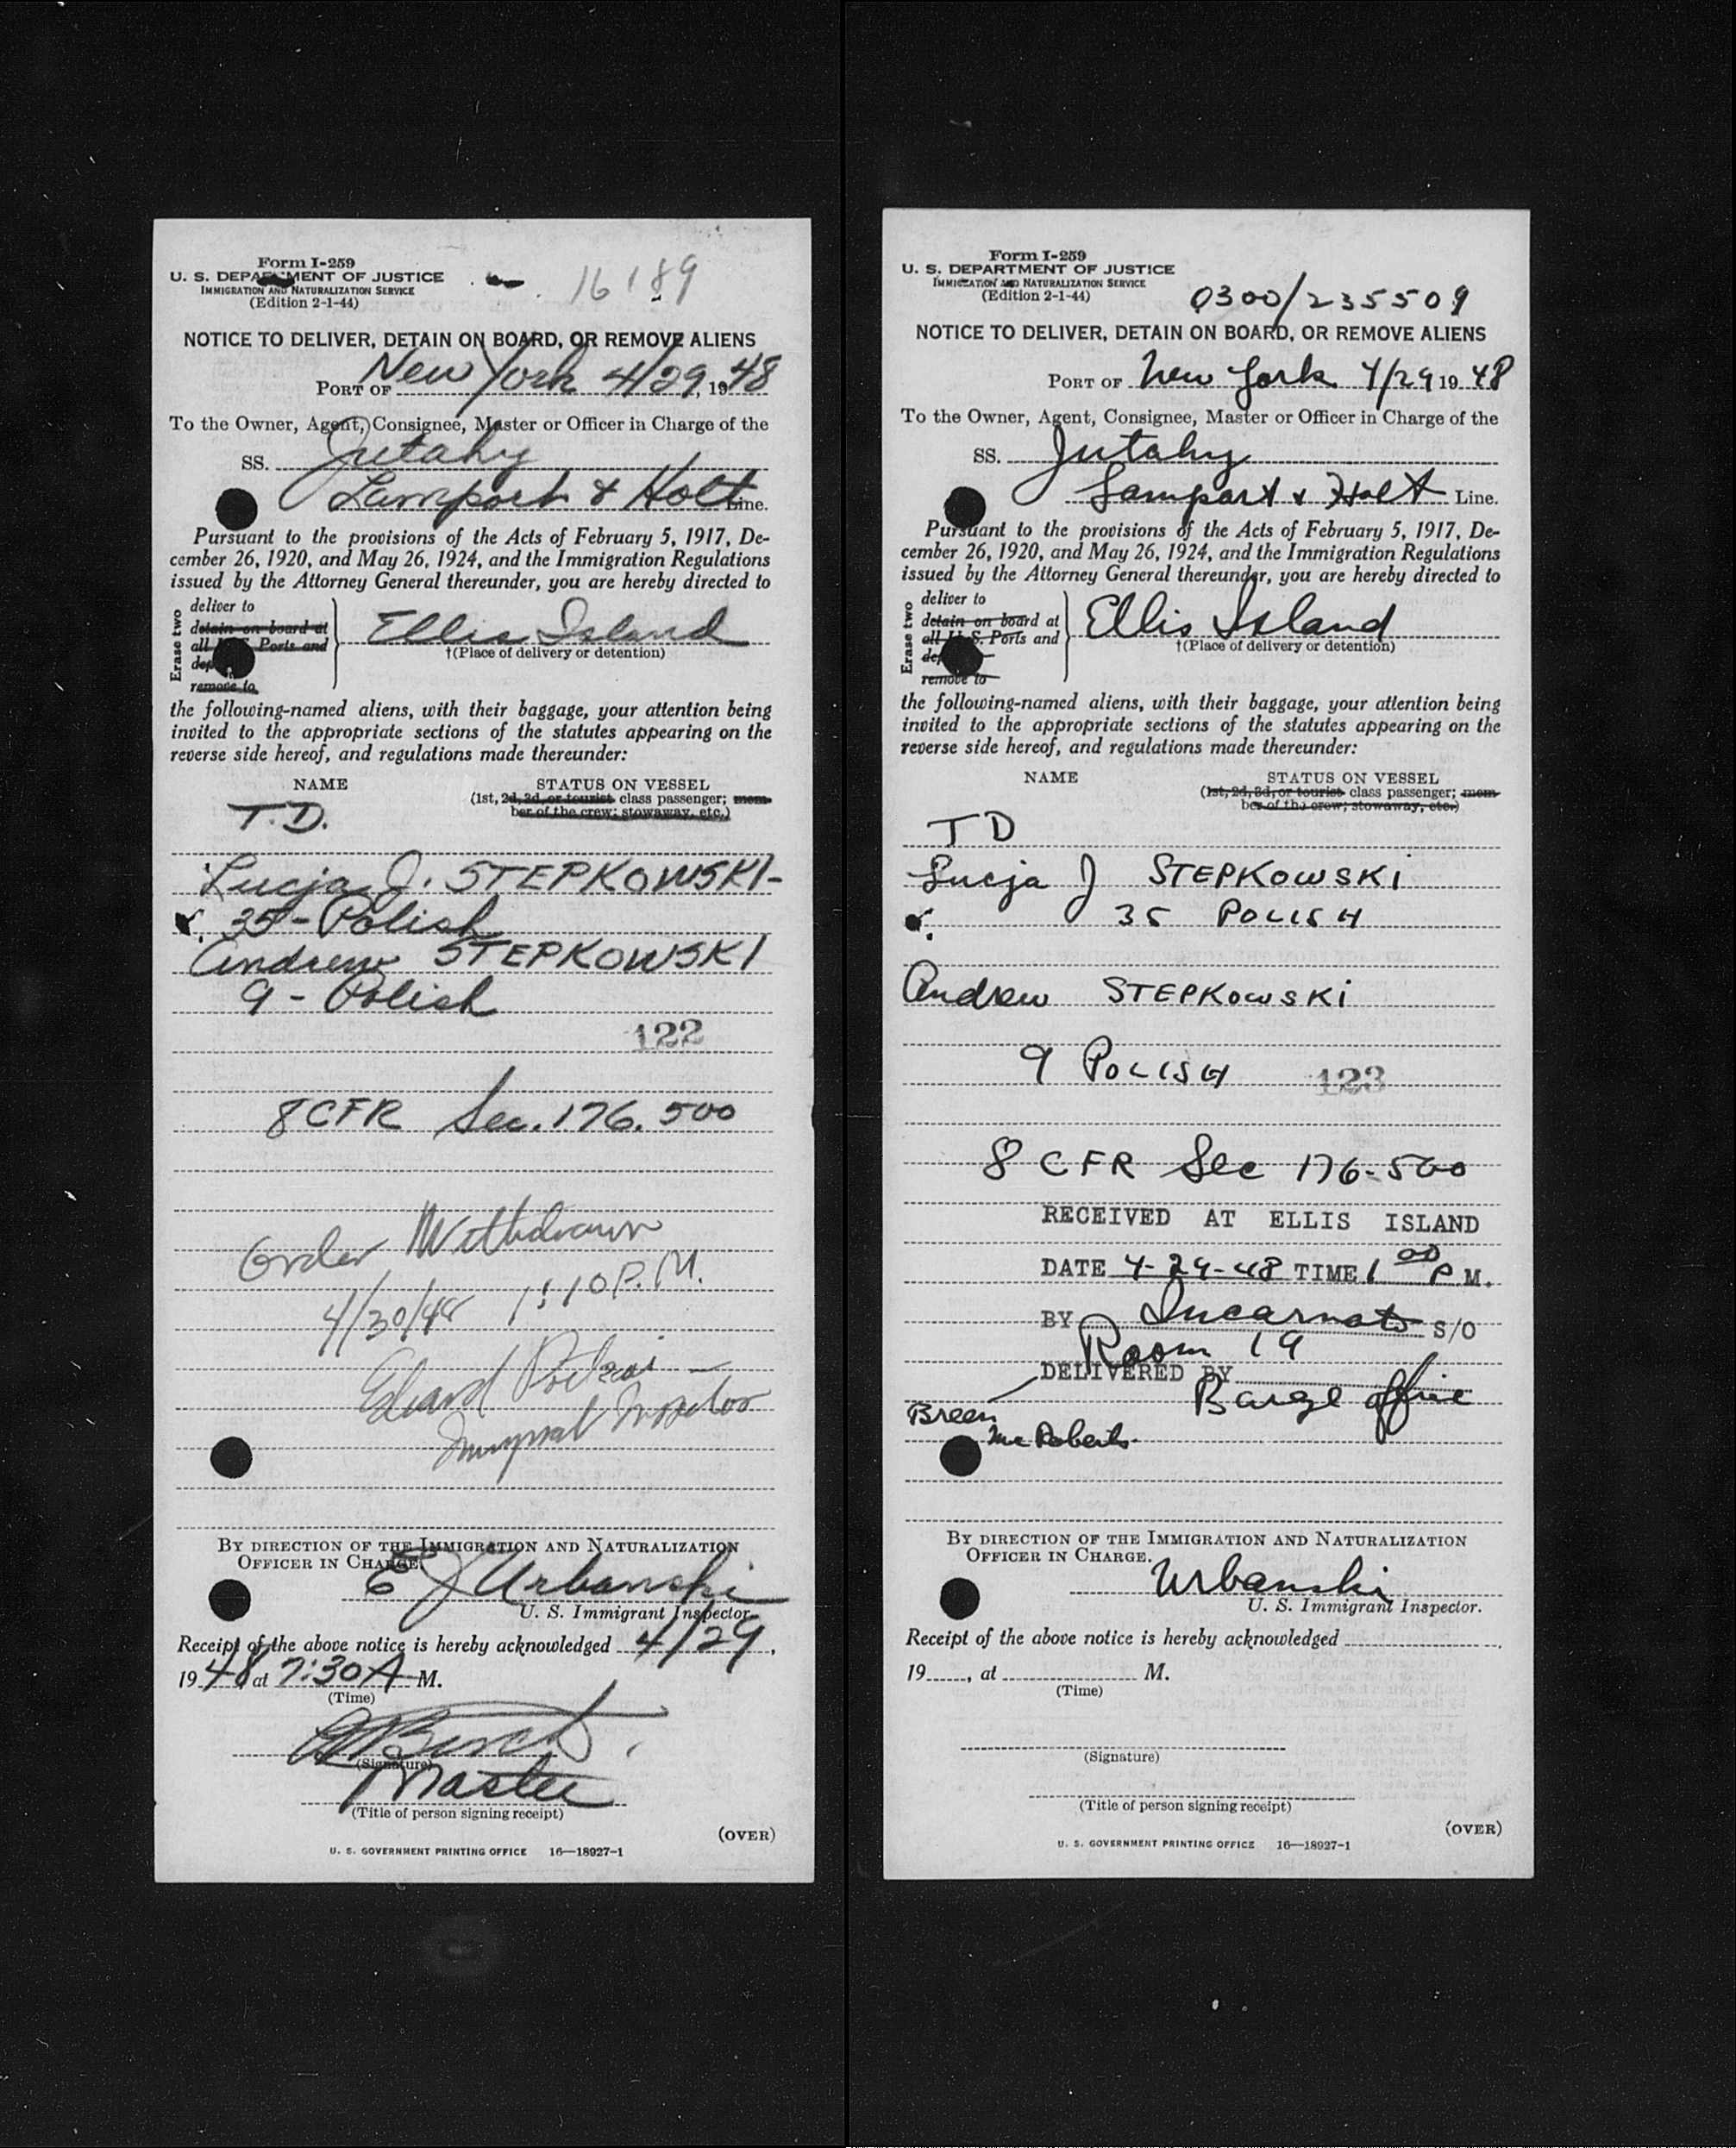 Form I-259
U. S. DEPARTMENT OF JUSTICE
IMMIGRATION AND NATURALIZATION SERVICE
(Edition 2-1-44)
16189
NOTICE TO DELIVER, DETAIN ON BOARD, OR REMOVE ALIENS
PORT OF New York 4/29, 1948
To the Owner, Agent, Consignee, Master or Officer in Charge of the
SS. Jutahy
Lamport & Holt Line.
Pursuant to the provisions of the Acts of February 5, 1917, De-
cember 26, 1920, and May 26, 1924, and the Immigration Regulations
issued by the Attorney General thereunder, you are hereby directed to
Erase two
deliver to
detain on board at
all Ports and
remove to
Ellis Island
†(Place of delivery or detention)
the following-named aliens, with their baggage, your attention being
invited to the appropriate sections of the statutes appearing on the
reverse side hereof, and regulations made thereunder:
NAME STATUS ON VESSEL
(1st, 2d, 3d, or tourist class passenger; mem-
ber of the crew; stowaway, etc.)
T.D.
Lucja J. STEPKOWSKI-
35 - Polish
Andrew STEPKOWSKI
9 - Polish
122
8 CFR Sec. 176.500
Order Withdrawn
4/30/48 1:10 P.M.
BY DIRECTION OF THE IMMIGRATION AND NATURALIZATION
OFFICER IN CHARGE.
E J Urbanski
U. S. Immigrant Inspector.
Receipt of the above notice is hereby acknowledged 4/29,
1948 at 7:30 A M.
(Time)
(Signature)
Master
(Title of person signing receipt)
(OVER)
U. S. GOVERNMENT PRINTING OFFICE 16—18927-1
Form I-259
U. S. DEPARTMENT OF JUSTICE
IMMIGRATION AND NATURALIZATION SERVICE
(Edition 2-1-44)
0300/235509
NOTICE TO DELIVER, DETAIN ON BOARD, OR REMOVE ALIENS
PORT OF New York 4/29 1948
To the Owner, Agent, Consignee, Master or Officer in Charge of the
SS. Jutahy
Lamport & Holt Line.
Pursuant to the provisions of the Acts of February 5, 1917, De-
cember 26, 1920, and May 26, 1924, and the Immigration Regulations
issued by the Attorney General thereunder, you are hereby directed to
Erase two
deliver to
detain on board at
all U.S. Ports and
remove to
Ellis Island
†(Place of delivery or detention)
the following-named aliens, with their baggage, your attention being
invited to the appropriate sections of the statutes appearing on the
reverse side hereof, and regulations made thereunder:
NAME STATUS ON VESSEL
(1st, 2d, 3d, or tourist class passenger; mem-
ber of the crew; stowaway, etc.)
T D
Lucja J STEPKOWSKI
35 POLISH
Andrew STEPKOWSKI
9 POLISH 123
8 CFR Sec 176-500
RECEIVED AT ELLIS ISLAND
DATE 4-29-48 TIME 1 00 P M.
BY Incarnato S/O
Room 19
DELIVERED BY
Barge office
Breen
McRoberts
BY DIRECTION OF THE IMMIGRATION AND NATURALIZATION
OFFICER IN CHARGE.
Urbanski
U. S. Immigrant Inspector.
Receipt of the above notice is hereby acknowledged
19....., at M.
(Time)
(Signature)
(Title of person signing receipt)
(OVER)
U. S. GOVERNMENT PRINTING OFFICE 16—18927-1